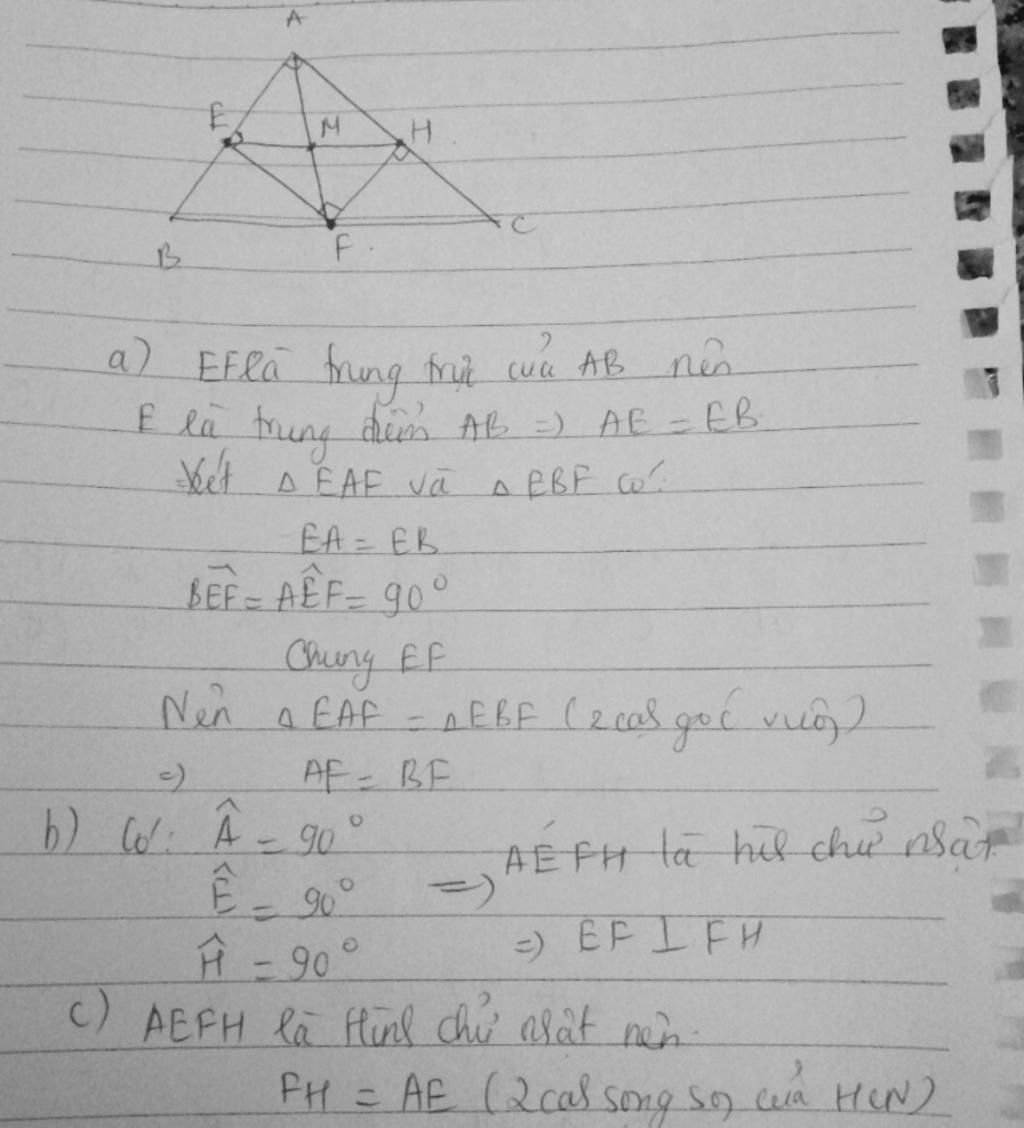 A
E M H
B F C
a) EF là trung trực của AB nên
E là trung điểm AB => AE = EB
Xét Δ EAF và Δ EBF có:
EA = EB
BÊF = AÊF = 90°
Chung EF
Nên Δ EAF = Δ EBF (2 cạh góc vuôg)
=> AF = BF
b) Có: Â = 90°
Ê = 90° => AEFH là hìh chữ nhật
Ĥ = 90° => EF ⊥ FH
c) AEFH là Hình chữ nhật nên.
FH = AE (2 cạh song sog của HCN)